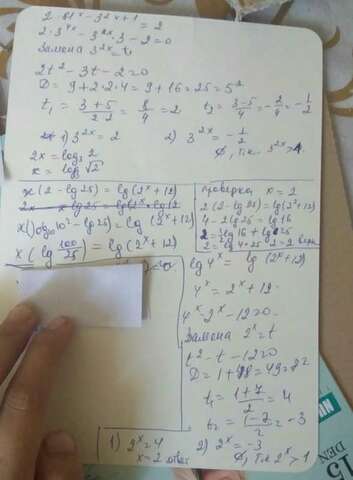 2·81ˣ - 3²ˣ⁺¹ = 2
2·3⁴ˣ - 3²ˣ·3 - 2 = 0
Замена 3²ˣ = t
2t² - 3t - 2 = 0
D = 9 + 2·2·4 = 9 + 16 = 25 = 5²
t₁ = (3+5)/(2·2) = 8/4 = 2  t₂ = (3-5)/4 = -2/4 = -1/2
1) 3²ˣ = 2  2) 3²ˣ = -1/2
2x = log₃ 2  ∅, т.к. 3²ˣ > 1
x = log₃ √2
x(2 - lg25) = lg(2ˣ + 12)
x(log₁₀ 10² - lg25) = lg(2ˣ + 12)
x(lg 100/25) = lg(2ˣ + 12)
проверка x = 2
2(2 - lg25) = lg(2² + 12)
4 - 2lg25 = lg16
2 = lg4 + 25  2 = 2 верн
lg4ˣ = lg(2ˣ + 12)
4ˣ = 2ˣ + 12
4ˣ - 2ˣ - 12 = 0
Замена 2ˣ = t
t² - t - 12 = 0
D = 1 + 48 = 49 = 7²
t₁ = (1+7)/2 = 4
t₂ = (1-7)/2 = -3
1) 2ˣ = 4  2) 2ˣ = -3
x = 2 ответ  ∅, т.к. 2ˣ > 1
15
DEN